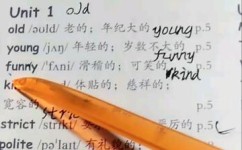 Unit 1 old
old /əʊld/ 老的；年纪大的 young p.5
young /jʌŋ/ 年轻的；岁数不大的 p.5
funny
funny /ˈfʌni/ 滑稽的；可笑的 p.5
kind
体贴的；慈祥的；
宽容的 p.5
strict /strɪkt/ 厉的 p.5
polite /pəˈlaɪt/ 有礼貌的